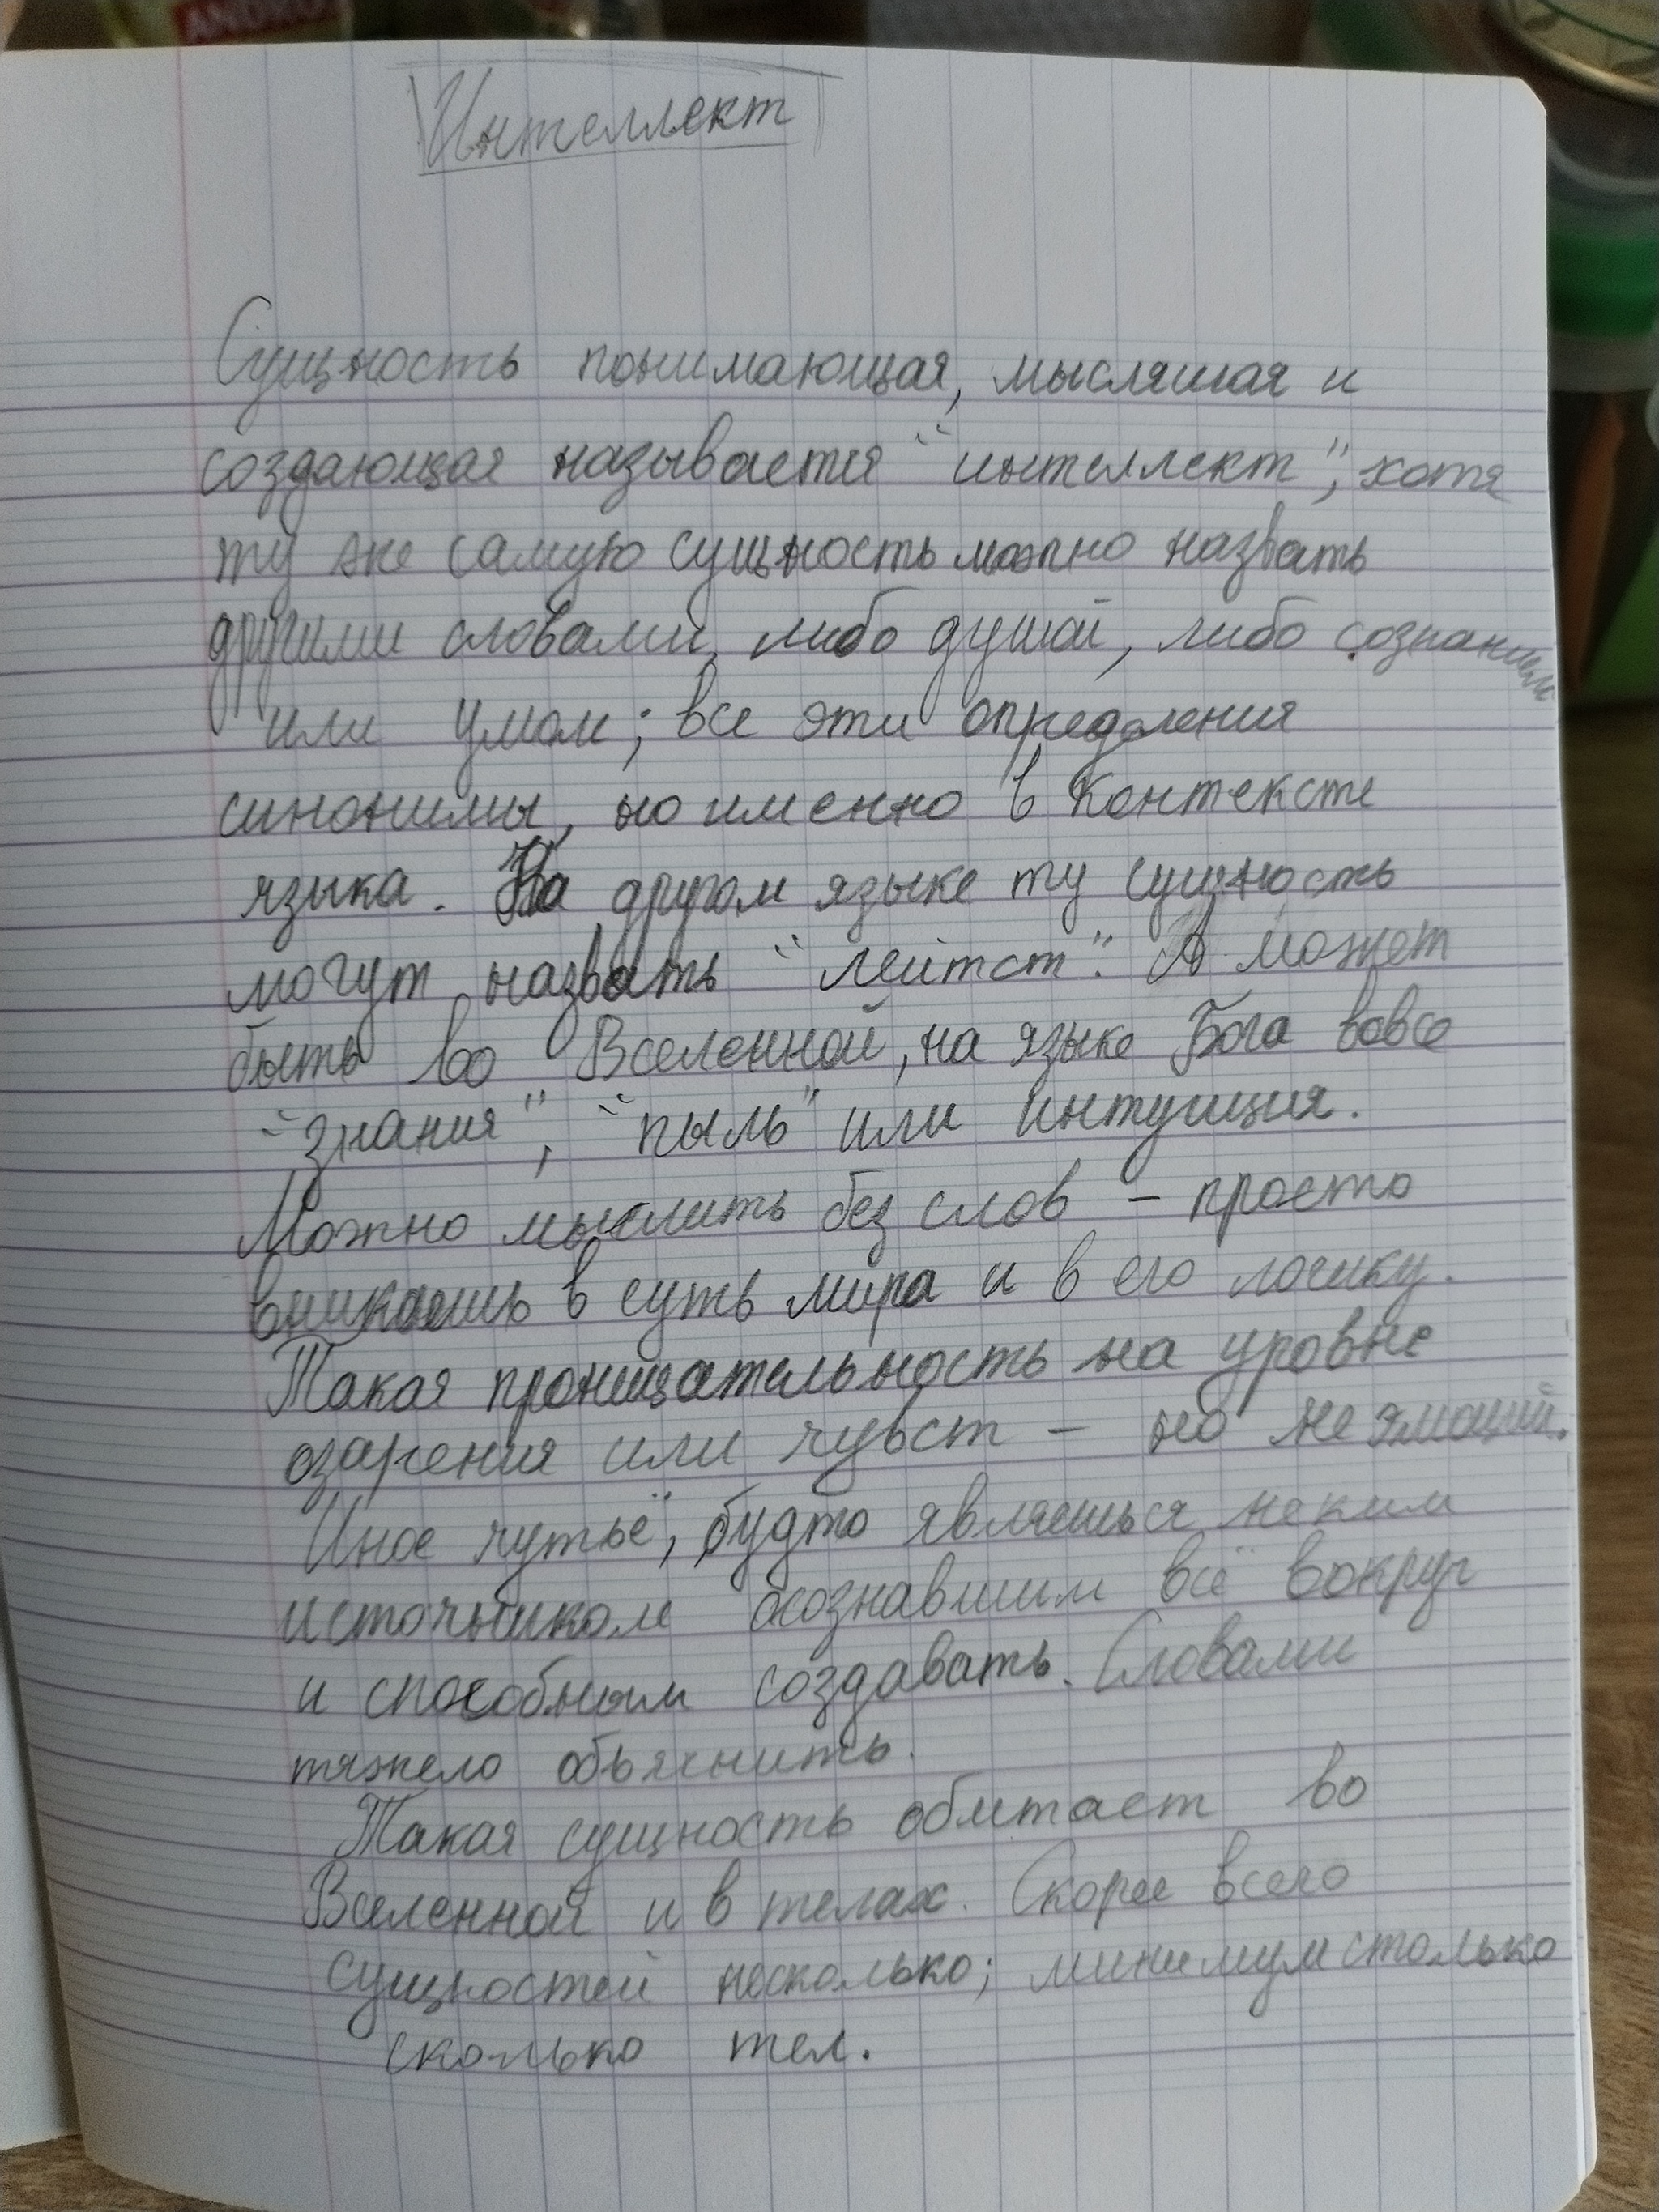 ANDRO
Интеллект
Сущность понимающая, мыслящая и
создающая называется "интеллект", хотя
ту же самую сущность можно назвать
другими словами, либо душой, либо сознанием
или умом; все эти определения
синонимы, но именно в контексте
языка. На другом языке ту сущность
могут назвать "лейтст". А может
быть во Вселенной, на языке Бога вовсе
"знания", "пыль" или интуиция.
Можно мыслить без слов – просто
вникаешь в суть мира и в его логику.
Такая проницательность на уровне
озарения или чувст – но не эмоций.
Иное чутьё, будто являешься неким
источником осознавшим всё вокруг
и способным создавать. Словами
тяжело объяснить.
Такая сущность обитает во
Вселенной и в телах. Скорее всего
сущностей несколько; минимум столько
сколько тел.